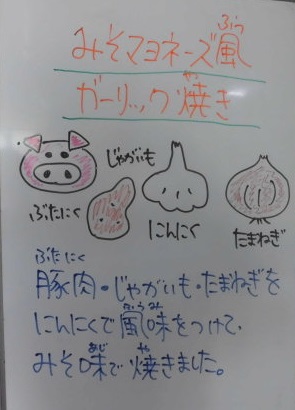 みそマヨネーズ風
ふう
ガーリック焼き
や
じゃがいも
ぶたにく
にんにく
たまねぎ
ぶたにく
豚肉・じゃがいも・たまねぎを
にんにくで風味をつけて、
ふうみ
みそ味で焼きました。
あじ
や